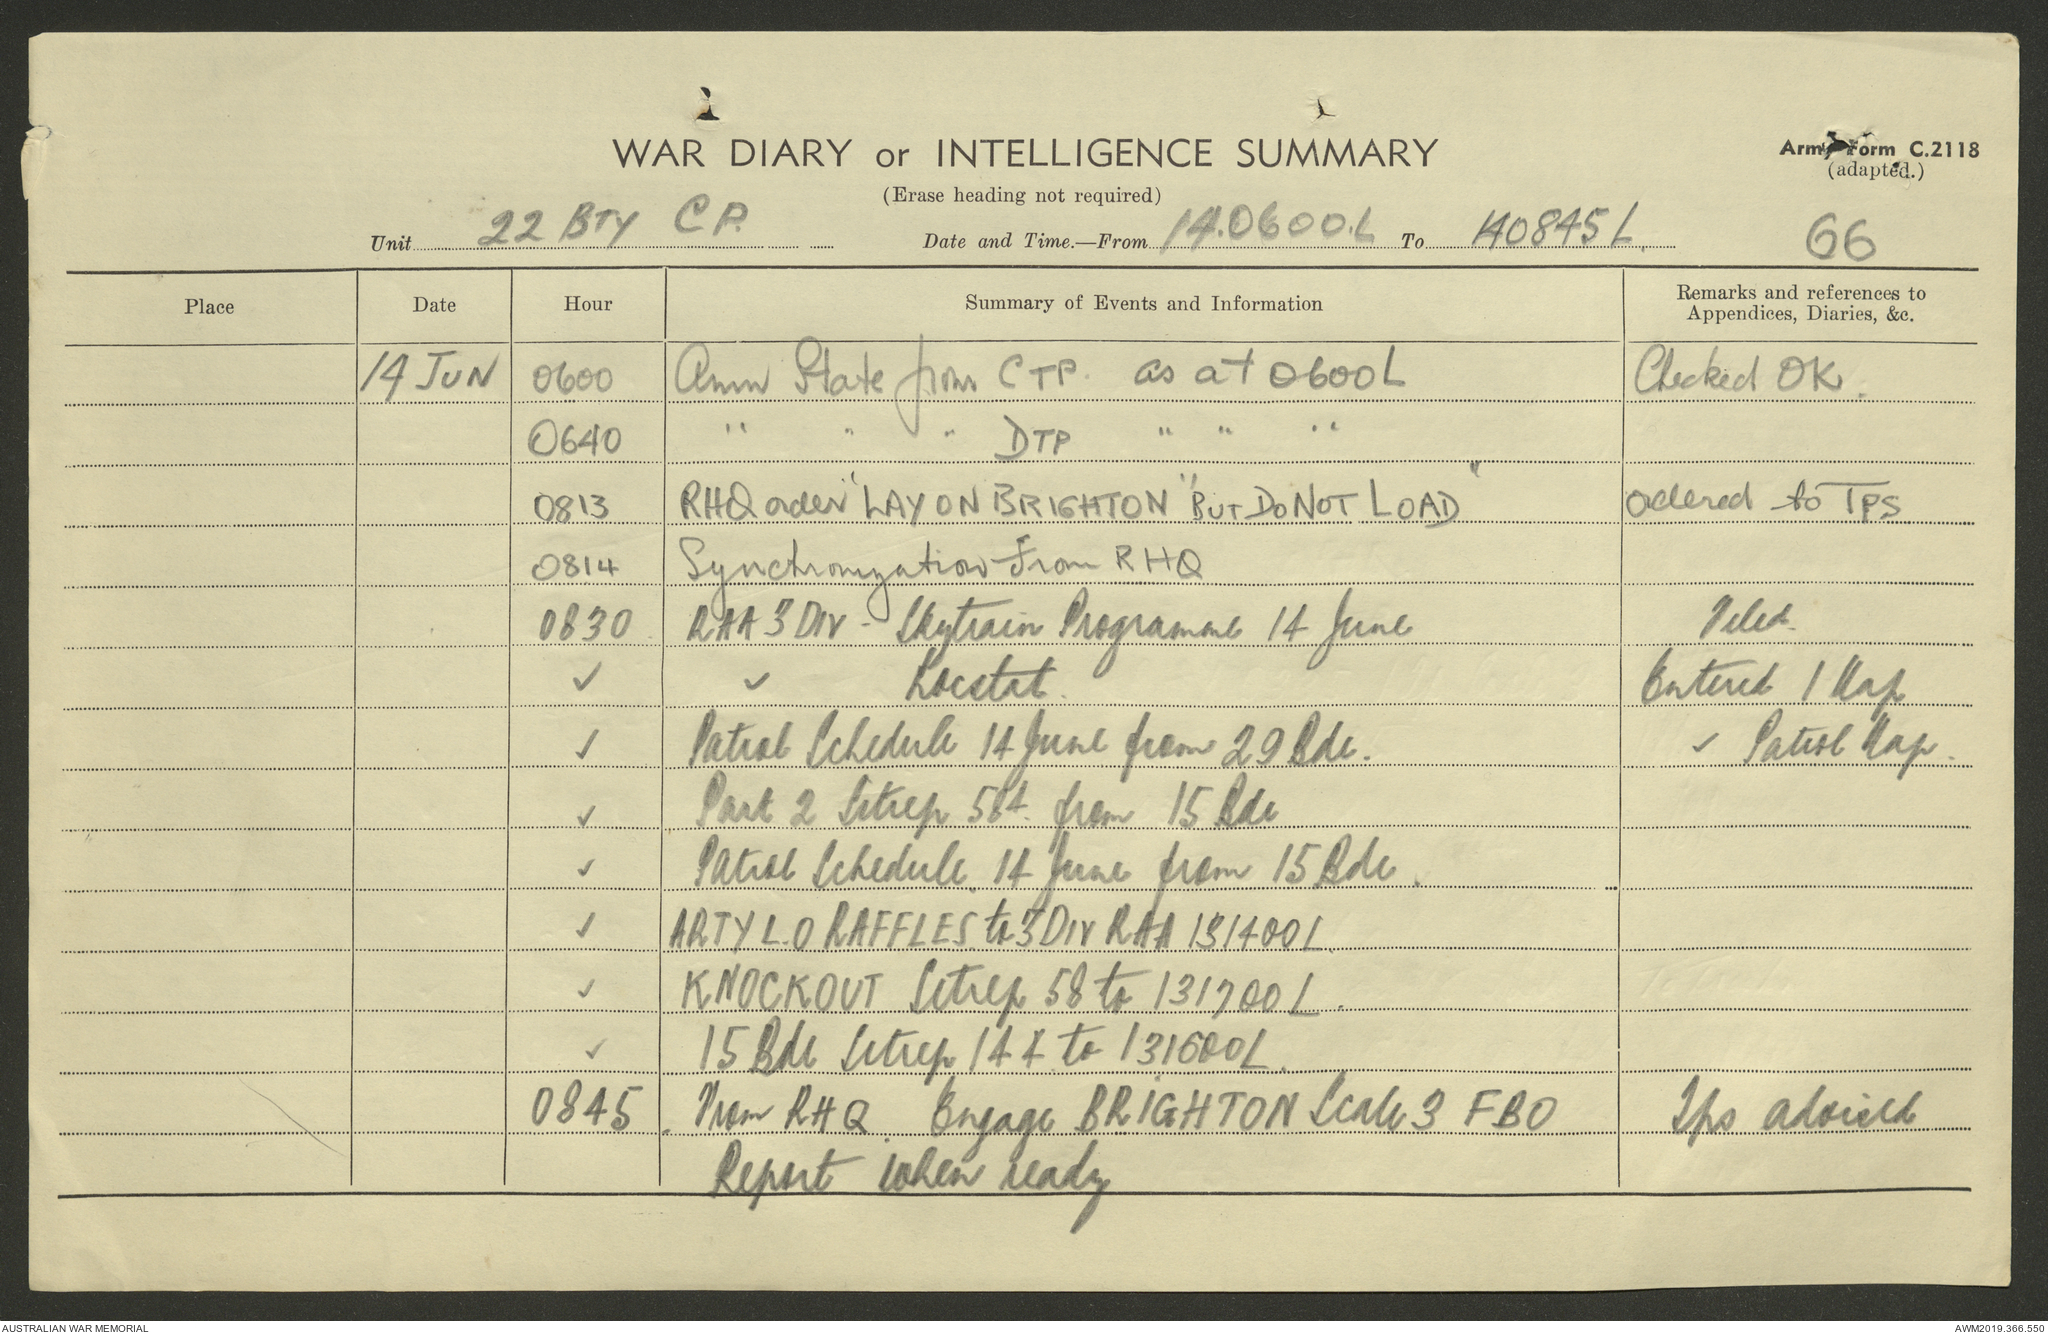 WAR DIARY or INTELLIGENCE SUMMARY
(Erase heading not required)
Army Form C.2118
(adapted.)
Unit 22 BTY C P. Date and Time.—From 14.0600.L To 140845L. 66
Place Date Hour Summary of Events and Information Remarks and references to Appendices, Diaries, &c.
14 JUN 0600 Amm State from C TP. as at 0600L Checked OK.
0640 " " " D TP " " "
0813 RHQ order "LAY ON BRIGHTON" BUT DO NOT LOAD" ordered to TPS
0814 Synchronization From RHQ
0830 RAA 3 DIV - Skytrain Programme 14 June Filed.
✓ ✓ Locstat. Entered 1 Map
✓ Patrol Schedule 14 June from 29 Bde. ✓ Patrol Map.
✓ Part 2 Sitrep from 15 Bde
✓ Patrol Schedule 14 June from 15 Bde.
✓ ARTY L.O RAFFLES to 3 DIV RAA 131400L.
✓ KNOCKOUT Sitrep 58 to 131700L.
✓ 15 Bde Sitrep to 131600L.
0845 From RHQ. Engage BRIGHTON Scale 3 FBO Tps advised
Report when ready
AUSTRALIAN WAR MEMORIAL
AWM2019.366.550